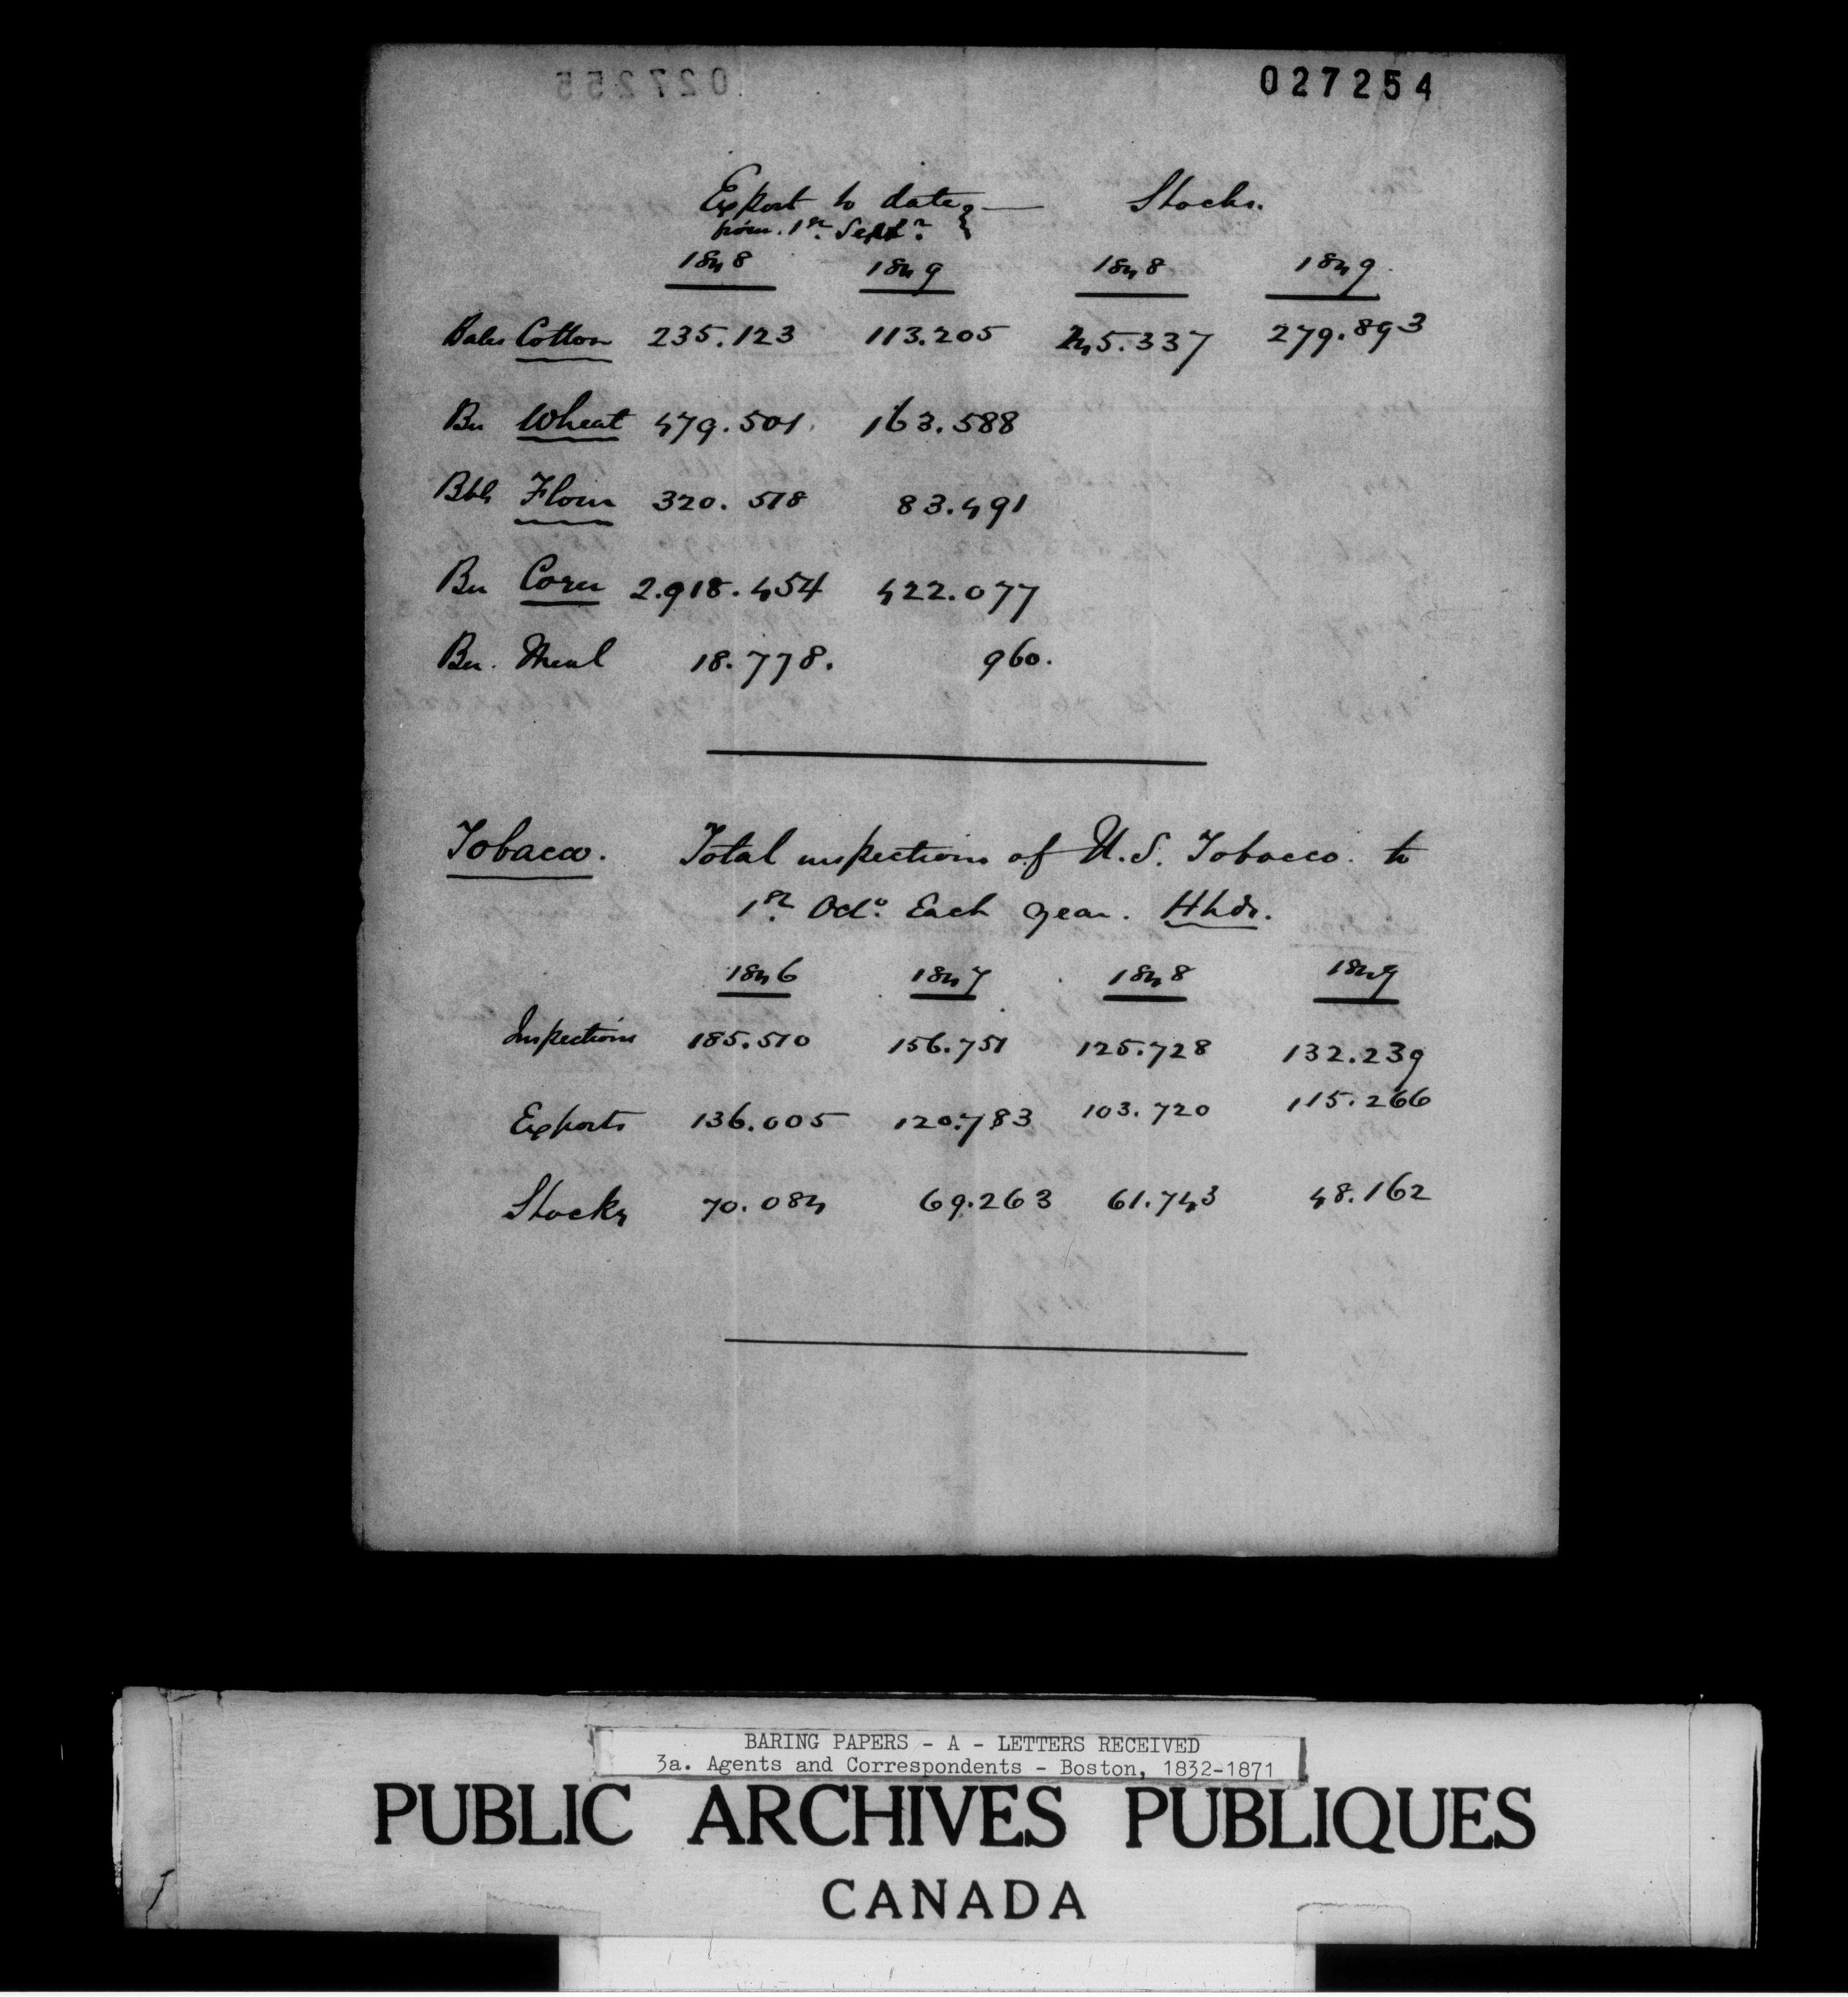 027255
027254
Export to date — Stocks.
from 1st Septr.
1848 1849 1848 1849
Bales Cotton 235.123 113.205 245.337 279.893
Bu Wheat 479.501 163.588
Bbls Flour 320.518 83.491
Bu Corn 2.918.454 422.077
Bu. Meal 18.778. 960.
Tobacco. Total inspections of U.S. Tobacco to
1st Octo. Each year. Hhds.
1846 1847 1848 1849
Inspections 185.510 156.751 125.728 132.239
Exports 136.005 120.783 103.720 115.266
Stocks 70.084 69.263 61.743 48.162
BARING PAPERS - A - LETTERS RECEIVED
3a. Agents and Correspondents - Boston, 1832-1871
PUBLIC ARCHIVES PUBLIQUES
CANADA